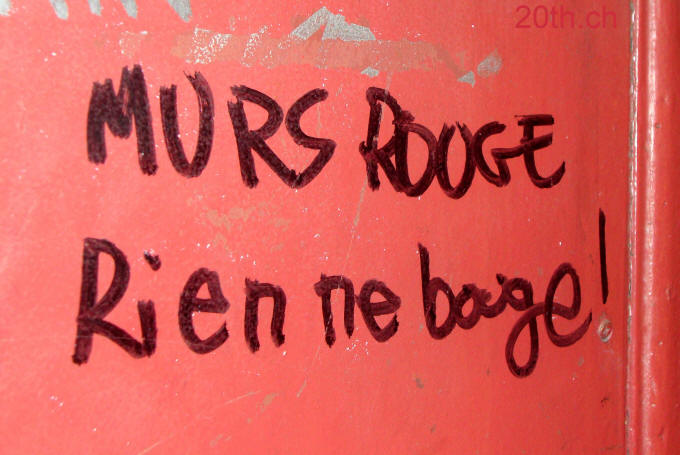 20th.ch
MURS ROUGE
Rien ne bouge!